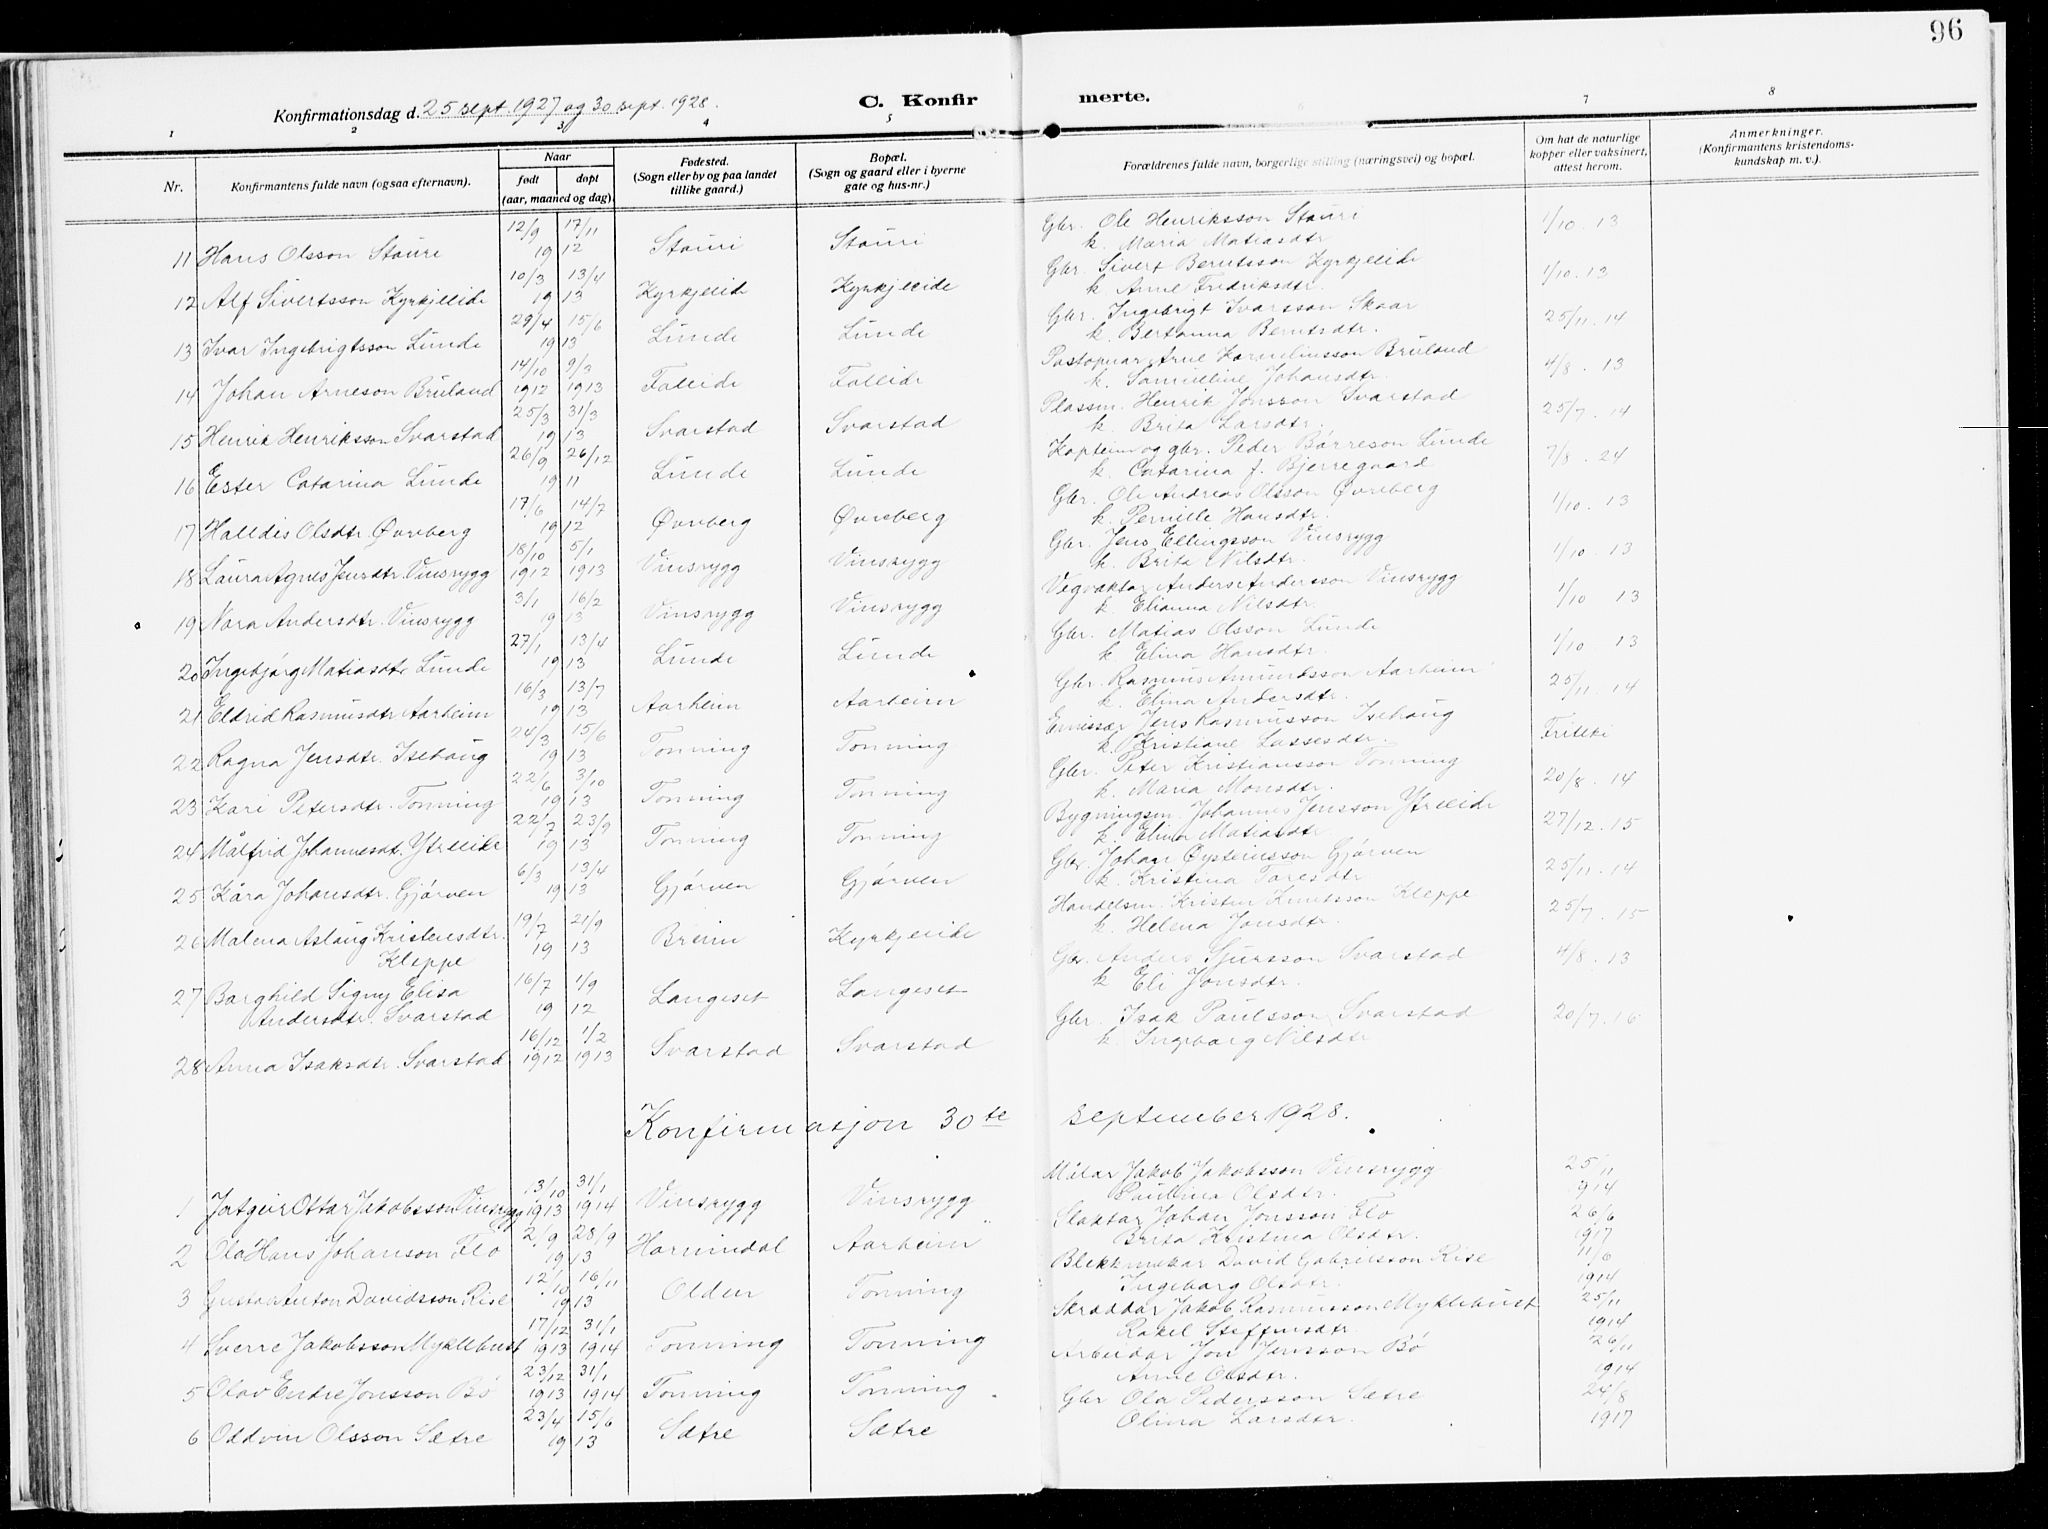 96
Konfirmationsdag d. 25 sept. 1927 og 30 sept. 1928.
C. Konfirmerte.
1 2 3 4 5 6 7 8
Nr.
Konfirmantens fulde navn (ogsaa efternavn).
Naar
født døpt
(aar, maaned og dag)
Fødested.
(Sogn eller by og paa landet
tillike gaard.)
Bopæl.
(Sogn og gaard eller i byerne
gate og hus-nr.)
Forældrenes fulde navn, borgerlige stilling (næringsvei) og bopæl.
Om hat de naturlige
kopper eller vaksinert,
attest herom.
Anmerkninger.
(Konfirmantens kristendoms-
kundskap m. v.).
12/9 17/11 Gbr. Ole Henriksson Stauri 1/10. 13
11 Hans Olsson Stauri 19 12 Stauri Stauri k. Maria Matiasdtr
10/3 13/4 Gbr. Sivert Berntsson Kyrkjeeide 1/10. 13
12 Alf Sivertsson Kyrkjeeide 19 13 Kyrkjeeide Kyrkjeeide k Anne Fredriksdtr.
29/4 15/6 Gbr. Ingebrigt Ivarsson Skaar 25/11. 14
13 Ivar Ingebrigtsson Lunde 19 13 Lunde Lunde k. Bertanna Berntsdtr.
14/10 9/3 Postopnar Arne Korneliusson Bruland 4/8. 13
14 Johan Arneson Bruland 1912 1913 Faleide Faleide k. Samueline Johansdtr.
25/3 31/3 Plassm. Henrik Jonsson Svarstad 25/7. 14
15 Henrik Henriksson Svarstad 19 13 Svarstad Svarstad k. Brita Larsdtr.
26/9 26/12 Kaptein og gbr. Peder Børreson Lunde 7/8. 24
16 Ester Catarina Lunde 19 11 Lunde Lunde k. Catarina f. Bjerregaard
17/6 14/7 Gbr. Ole Andreas Olsson Øvreberg 1/10. 13
17 Halldis Olsdtr. Øvreberg 19 12 Øvreberg Øvreberg k. Pernille Hansdtr.
18/10 5/1 Gbr. Jens Ellingsson Vinsrygg 1/10. 13
18 Laura Agnes Jensdtr. Vinsrygg 1912 1913 Vinsrygg Vinsrygg k. Brita Nilsdtr.
3/1 16/2 Vegvaktar Anders Andersson Vinsrygg 1/10 13
19 Nora Andersdtr. Vinsrygg 19 13 Vinsrygg Vinsrygg k. Elianna Nilsdtr.
27/1 13/4 Gbr. Matias Olsson Lunde 1/10 13
20 Ingebjørg Matiasdtr Lunde 19 13 Lunde Lunde k. Elina Hansdtr.
16/3 13/7 Gbr. Rasmus Amundsson Aarheim 25/11. 14
21 Eldrid Rasmusdtr Aarheim 19 13 Aarheim Aarheim k. Elina Andersdtr.
24/3 15/6 Emissær Jens Rasmusson Isehaug Friteki
22 Ragna Jensdtr. Isehaug 19 13 Tonning Tonning k. Kristiane Lassesdtr.
22/6 3/10 Gbr. Peter Kristiansson Tonning 20/8. 14
23 Kari Petersdtr. Tonning 19 13 Tonning Tonning k. Maria Monsdtr.
22/7 23/9 Bygningsm. Johannes Jensson Ytreeide 27/12. 15
24 Målfrid Johannesdt. Ytreeide 19 13 Tonning Tonning k. Elina Matiasdtr.
6/3 13/4 Gbr. Johan Øysteinsson Gjørven 25/11. 14
25 Kåra Johansdtr. Gjørven 19 13 Gjørven Gjørven k. Kristina Taresdtr
19/7 21/9 Handelsm. Kristen Knutsson Kleppe 25/7. 15
26 Malena Aslaug Kristensdtr. 19 13 Breim Kyrkjeeide k. Helena Jonsdtr.
Kleppe
16/7 1/9 Gbr. Anders Sjursson Svarstad 4/8. 13
27 Borghild Signy Elisa Langeset Langeset k Eli Jonsdtr.
Andersdtr. Svarstad 19 12
16/12 1/2 Gbr. Isak Paulsson Svarstad 20/7. 16
28 Anna Isaksdtr. Svarstad 1912 1913 Svarstad Svarstad k. Ingeborg Nilsdtr
Konfirmasjon 30te september 1928.
13/10 31/1 Målar Jakob Jakobsson Vinsrygg 25/11
1 Jatgeir Ottar Jakobsson Vinsrygg 1913 1914 Vinsrygg Vinsrygg Paulina Olsdtr. 1914
2/9 28/9 Slaktar Johan Jonsson Flo 26/6
2 Ola Hans Johanson Flo 19 13 Hornindal Aarheim Brita Kristina Olsdtr. 1917
12/10 16/11 Blekkmakar David Gabrielsson Rise 11/6
3 Gustav Anton Davidsson Rise 19 13 Olden Tonning Ingeborg Olsdtr. 1914
17/12 31/1 Skræddar Jakob Rasmusson Myklebust 25/11
4 Sverre Jakobsson Myklebust 1913 1914 Tonning Tonning Rakel Steffensdtr. 1914
23/12 31/1 Arbeidar Jon Jensson Bø 26/11
5 Olav Endre Jonsson Bø 1913 1914 Tonning Tonning Anne Olsdtr. 1914
23/4 15/6 Gbr Ola Pedersson Sætre 24/8
6 Oddvin Olsson Sætre 19 13 Sætre Sætre Olina Larsdtr. 1917